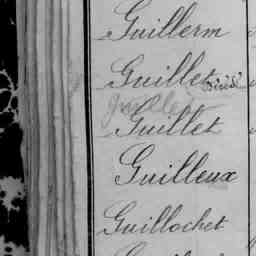 Guillerm
Guillet
Guillet
Guillet
Guilleux
Guillochet